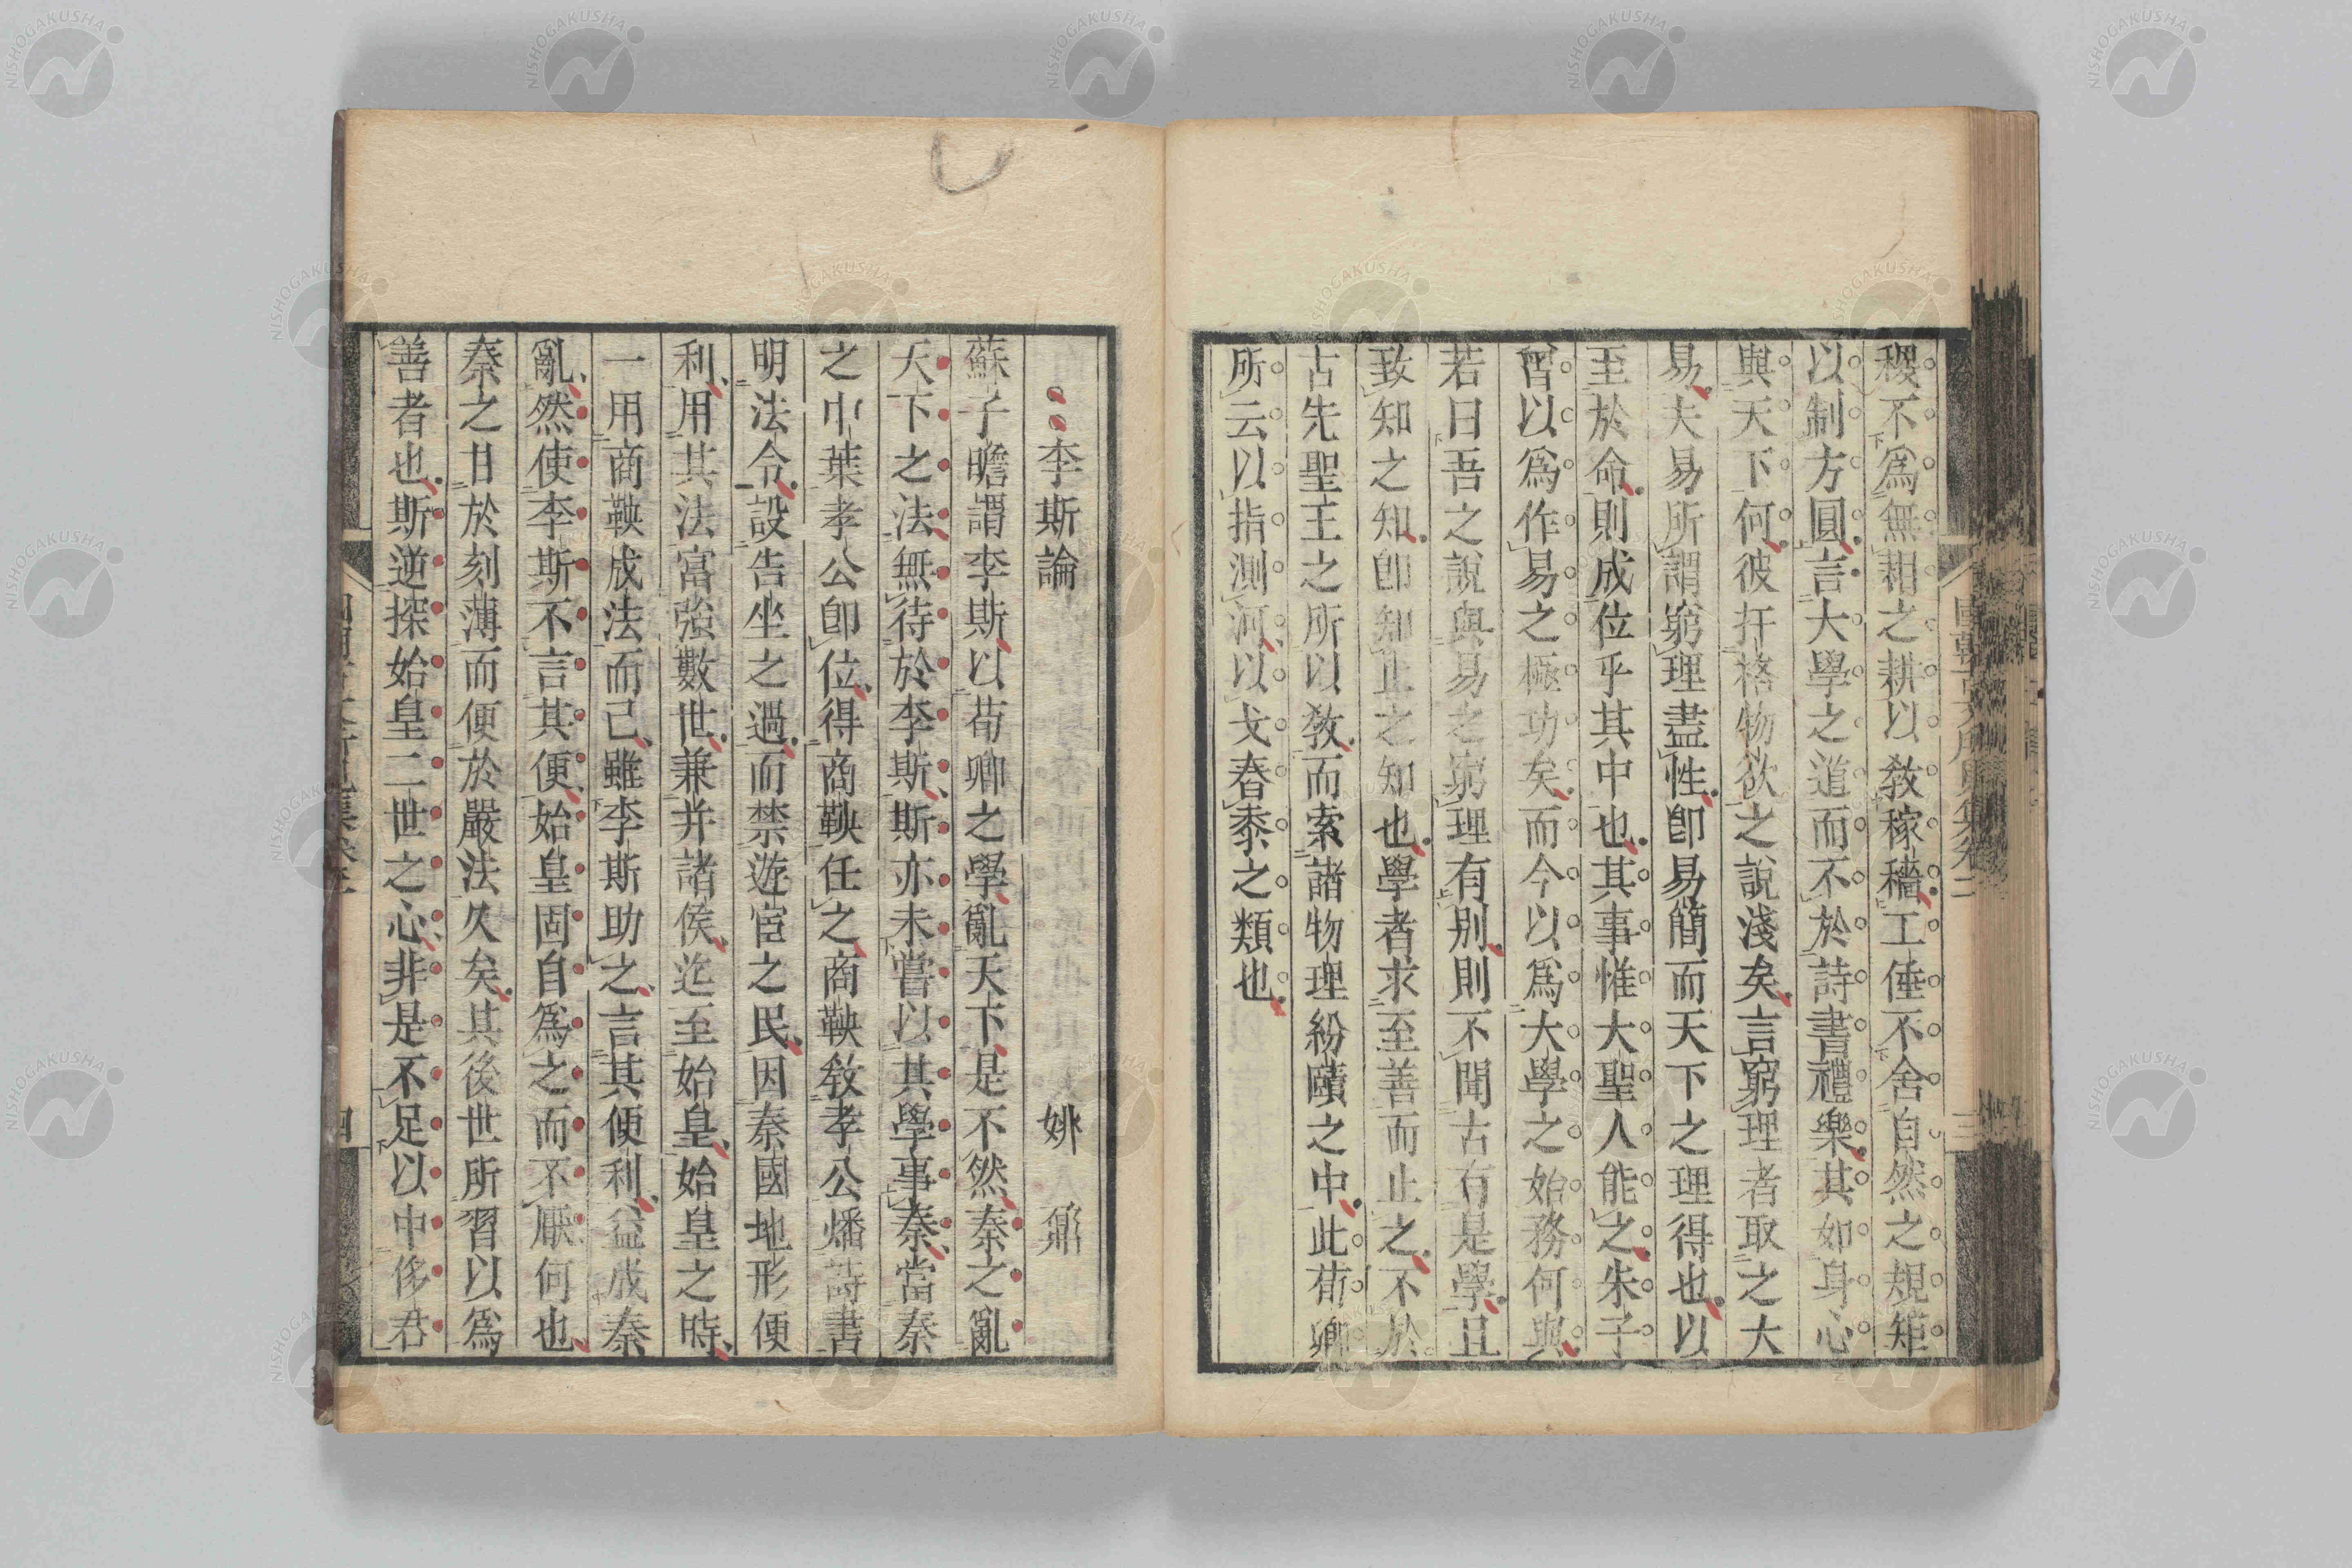 稷不爲無耜之耕以敎稼穡工倕不舍自然之規矩
以制方圓言大學之道而不於詩書禮樂其如身心
與天下何彼扞格物欲之說淺矣言窮理者取之大
易夫易所謂窮理盡性卽易簡而天下之理得也以
至於命則成位乎其中也其事惟大聖人能之朱子
曾以爲作易之極功矣而今以爲大學之始務何與
若曰吾之說與易之窮理有別則不聞古有是學且
致知之知卽知止之知也學者求至善而止之不於
古先聖王之所以敎而索諸物理紛賾之中此荀卿
所云以指測河以戈舂黍之類也
李斯論 姚鼐
蘇子瞻謂李斯以荀卿之學亂天下是不然秦之亂
天下之法無待於李斯斯亦未嘗以其學事秦當秦
之中葉孝公卽位得商鞅任之商鞅敎孝公燔詩書
明法令設告坐之過而禁遊宦之民因秦國地形便
利用其法富強數世兼并諸侯迄至始皇始皇之時
一用商鞅成法而已雖李斯助之言其便利益成秦
亂然使李斯不言其便始皇固自爲之而不厭何也
秦之甘於刻薄而便於嚴法久矣其後世所習以爲
善者也斯逆探始皇二世之心非是不足以中侈君
四
NISHOGAKUSHA